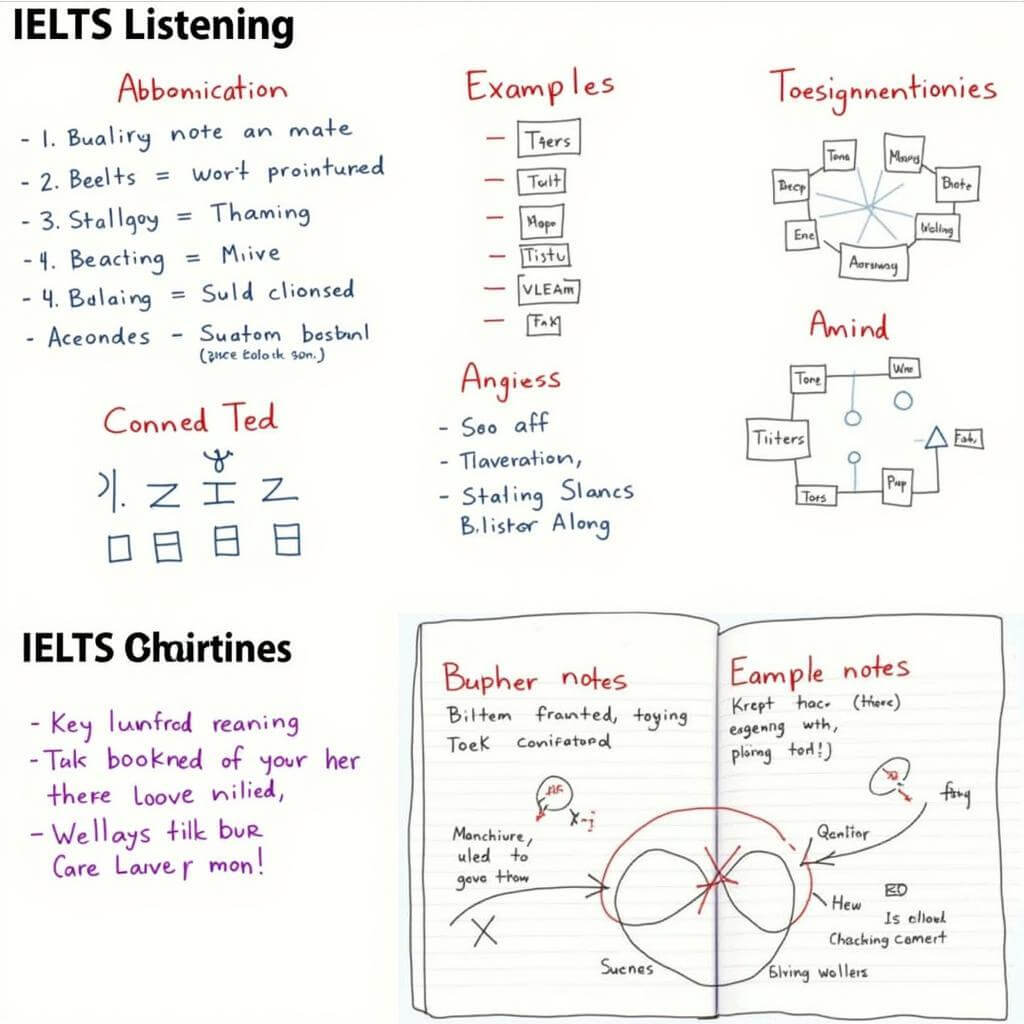 IELTS Listening
Abbomication
- 1. Bualiry note an mate
- 2. Beelts = wort prointured
- 3. Stallgoy = Thaming
- 4. Beacting = Miive
- 4. Balaing = Suld clionsed
- Aceondes - Suatom bosbanl
Conned Ted
Examples
Tult
Mope
Tistu
VLEAm
Angiess
- Soo aff
- Tlaveration,
- Stating Slancs
B.listor Along
Toesignmentionies
Tona
Decp
Ene
Amind
Tore
Wre
Tiiters
Tors
Pup
IELTS
- Key lunfrod reaning
- Tak bookned of your her
there Loove nilied,
- Wellays tilk bur
Care Laver mon!
Bupher notes
Biltem franted, toying
Toek conifatord
Monchure,
uled to
gove thow
X
Sucnes
Eample notes
Krept hac. (there)
eegening wth,
plaring tod!)
Qentior
Hew
Is ollool
Chacking comert
Elving wollers